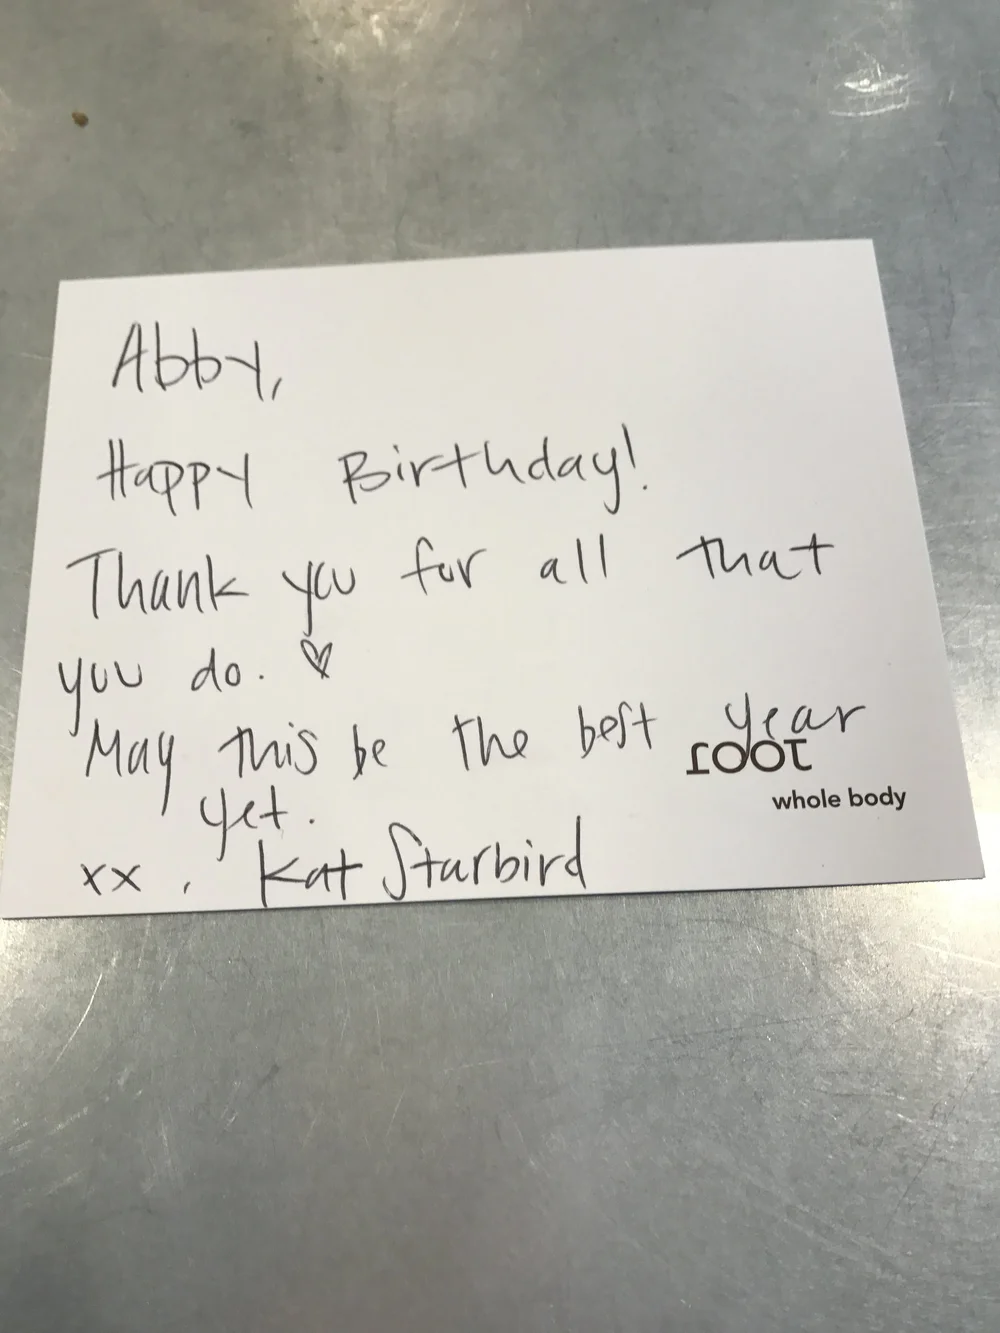 Abby,
Happy Birthday!
Thank you for all that
you do. ♡
May this be the best year
yet.
root
whole body
xx, Kat Starbird